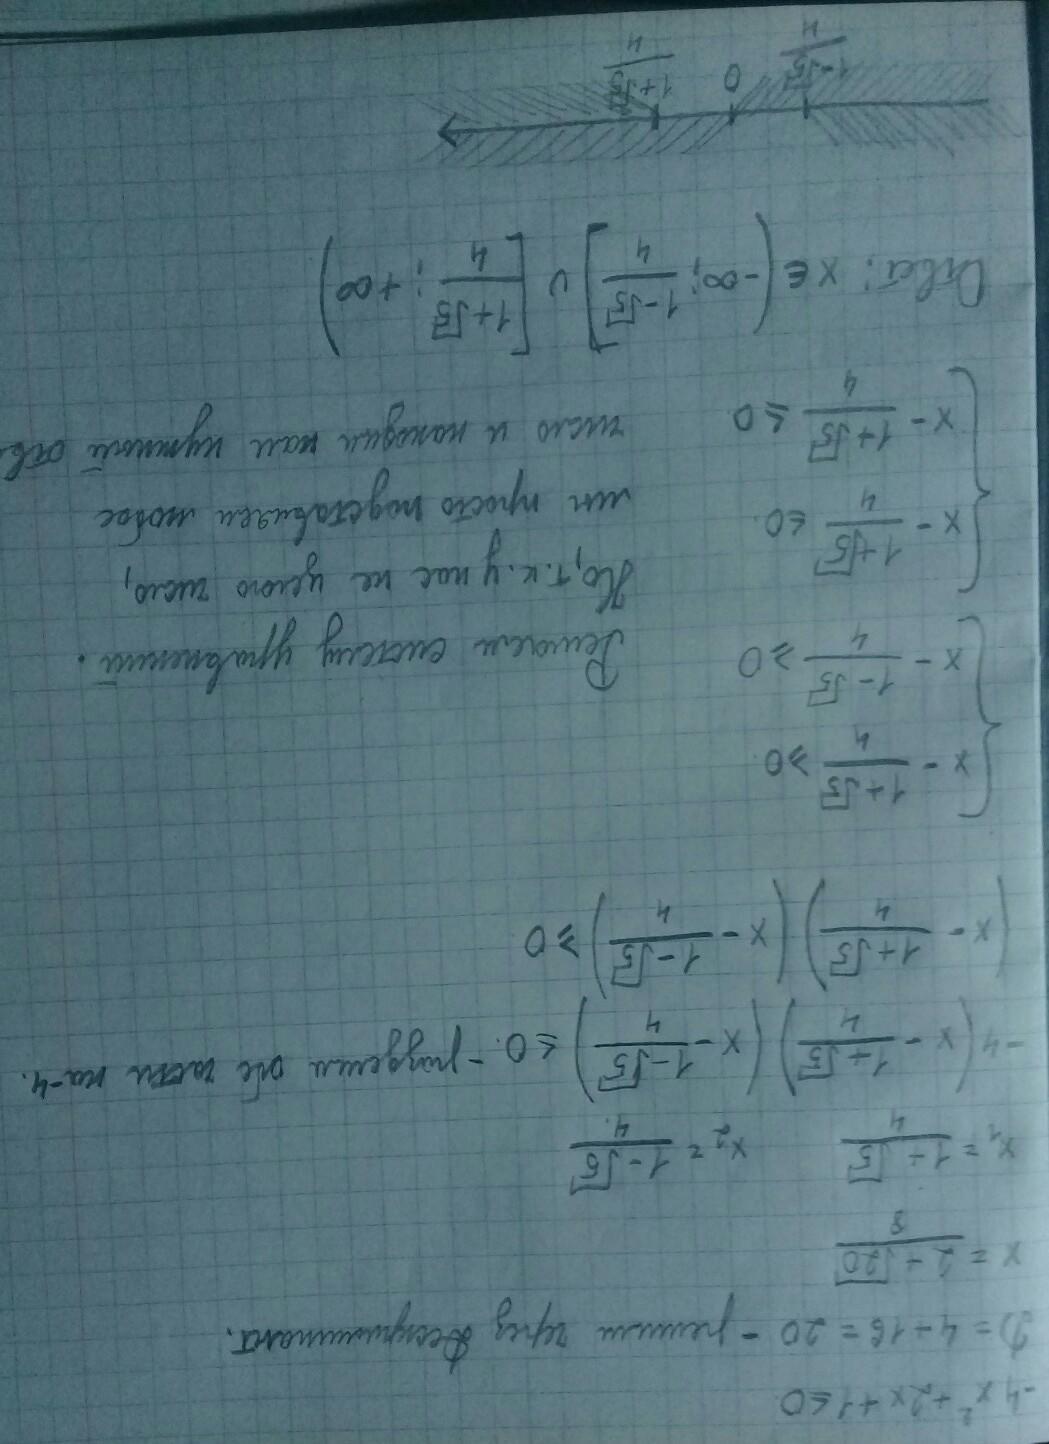 -4x² + 2x + 1 ≤ 0
D = 4 + 16 = 20 - решаем через Дескриминант.
x = (2 ± √20)/8
x₁ = (1 + √5)/4 x₂ = (1 - √5)/4
-4(x - (1+√5)/4)(x - (1-√5)/4) ≤ 0. - разделим обе части на -4.
(x - (1+√5)/4)(x - (1-√5)/4) ≥ 0
{ x - (1+√5)/4 ≥ 0
x - (1-√5)/4 ≥ 0
Решаем систему уравнений.
Но, т.к. у нас не целого число,
мы просто подставляем любое
число и находим нам нужный отв
{ x - (1+√5)/4 ≤ 0.
x - (1+√5)/4 ≤ 0
Ответ: x ∈ (-∞; (1-√5)/4] ∪ [(1+√5)/4; +∞)
(1-√5)/4 0 (1+√5)/4